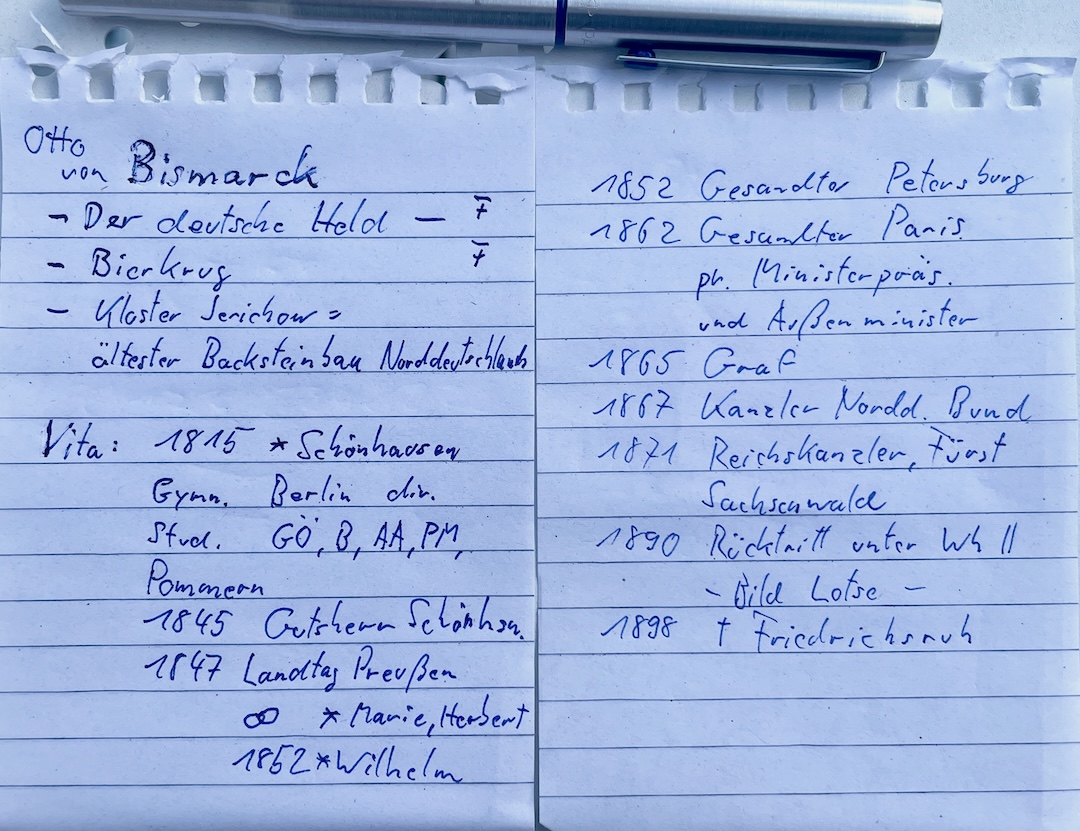 Otto
von Bismarck
- Der deutsche Held - F
- Bierkrug F
- Kloster Jerichow =
ältester Backsteinbau Norddeutschlands
Vita: 1815 * Schönhausen
Gymn. Berlin div.
Stud. GÖ, B, AA, PM,
Pommern
1845 Gutsherr Schönhsn.
1847 Landtag Preußen
∞ * Marie, Herbert
1852 * Wilhelm
1852 Gesandter Petersburg
1862 Gesandter Paris
pr. Ministerpräs.
und Außenminister
1865 Graf
1867 Kanzler Nordd. Bund
1871 Reichskanzler, Fürst
Sachsenwald
1890 Rücktritt unter Wh II
- Bild Lotse -
1898 † Friedrichsruh